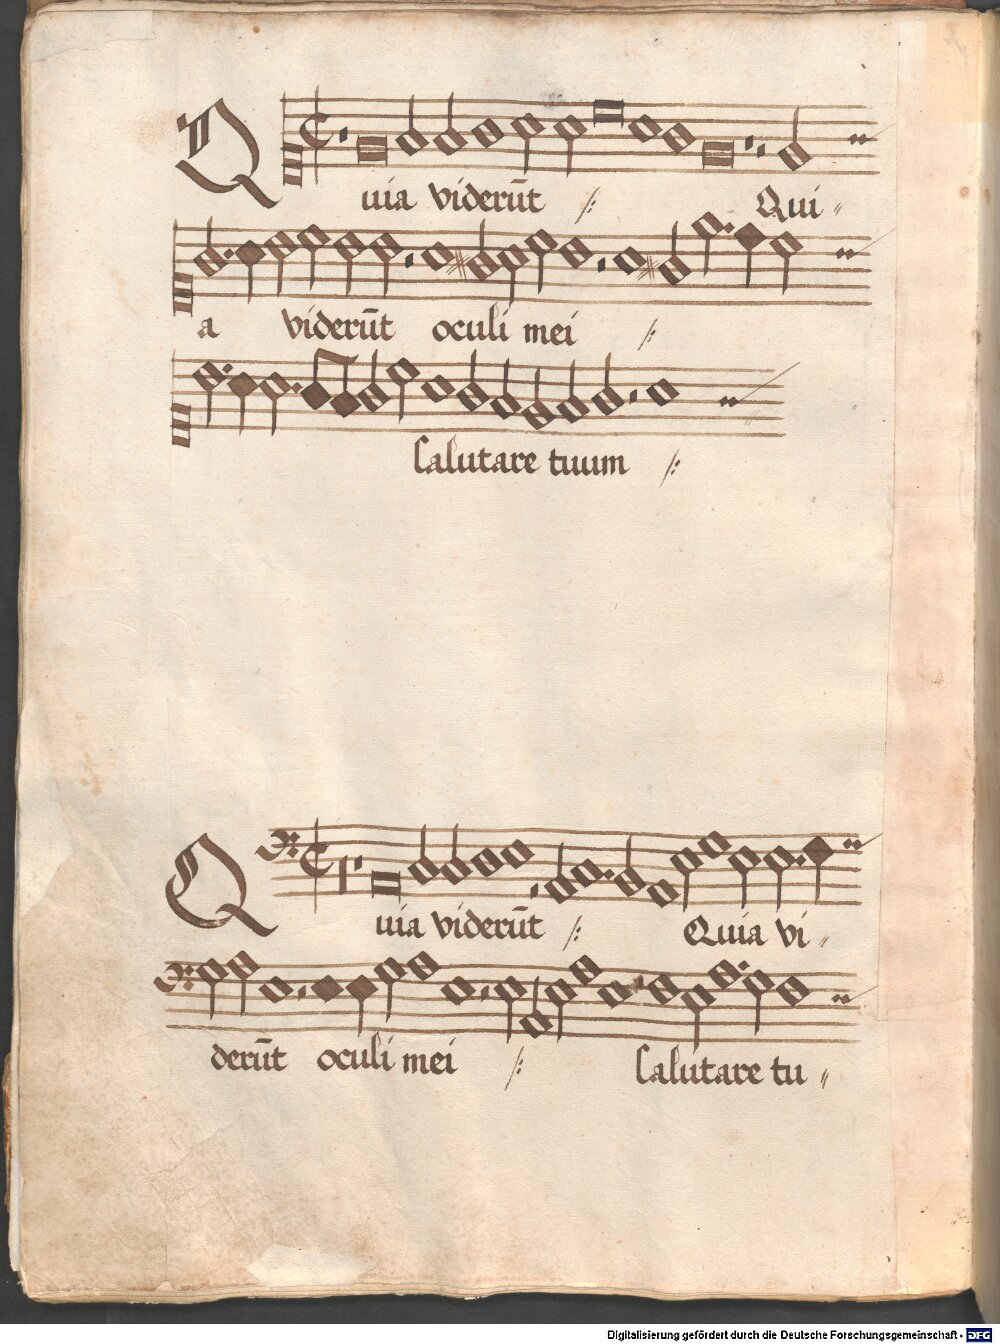 Quia viderūt /: Qui
a viderūt oculi mei /:
Salutare tuum /:
Quia viderūt /: Quia vi
derūt oculi mei /: Salutare tu
Digitalisierung gefördert durch die Deutsche Forschungsgemeinschaft - DFG